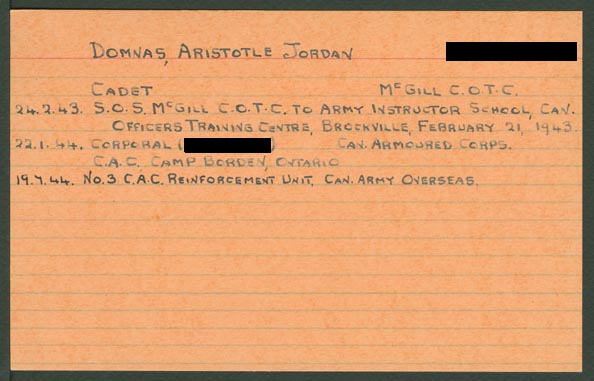 DOMNAS, ARISTOTLE JORDAN
CADET McGILL C.O.T.C.
24.2.43. S.O.S. McGILL C.O.T.C. TO ARMY INSTRUCTOR SCHOOL, CAN.
OFFICERS TRAINING CENTRE, BROCKVILLE, FEBRUARY 21, 1943.
22.1.44. CORPORAL ( ) CAN. ARMOURED CORPS.
C.A.C. CAMP BORDEN, ONTARIO
19.7.44. No.3 C.A.C. REINFORCEMENT UNIT, CAN. ARMY OVERSEAS.